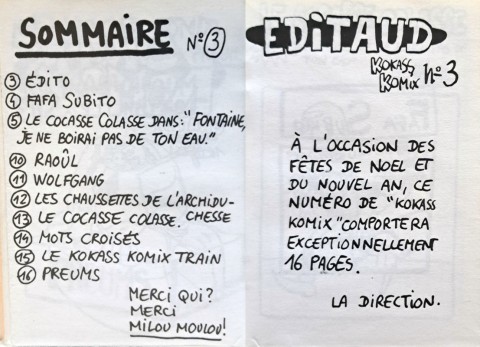 SOMMAIRE N°3
3 ÉDITO
4 FAFA SUBITO
5 LE COCASSE COLASSE DANS: "FONTAINE,
JE NE BOIRAI PAS DE TON EAU."
10 RAOÛL
11 WOLFGANG
12 LES CHAUSSETTES DE L'ARCHIDU-
CHESSE
13 LE COCASSE COLASSE.
14 MOTS CROISÉS
15 LE KOKASS KOMIX TRAIN
16 PREUMS
MERCI QUI?
MERCI
MILOU MOULOU!
EDITAUD
KOKASS
KOMIX N°3
À L'OCCASION DES
FÊTES DE NOEL ET
DU NOUVEL AN, CE
NUMÉRO DE "KOKASS
KOMIX "COMPORTERA
EXCEPTIONNELLEMENT
16 PAGES.
LA DIRECTION.